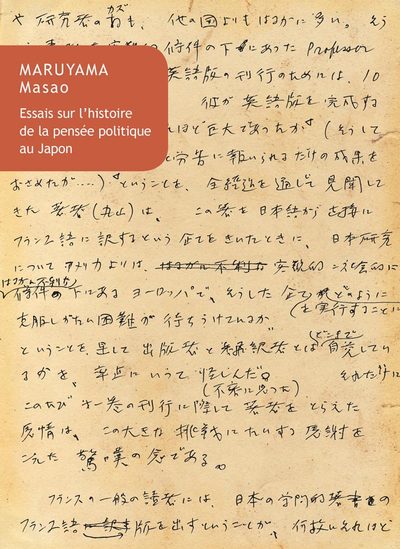 や研究者のカズも、他の国よりもはるかに多い。そう
条件の下にあった Professor
MARUYAMA
Masao
英語版の刊行のためには、10
彼が英語版を完成する
Essais sur l'histoire
de la pensée politique
au Japon
ほど巨大であったか(そうして
労苦に報いられるだけの成果を
おさめたが....)ということを、全経過を通じて見聞して
きた著者(丸山)は、この書を日本語から直接に
フランス語に訳するという企てをきいたときに、日本研究
についてアメリカよりは、はるかに不利な
はるかに不利な
条件の下にあるヨーロッパで、そうした企て どのように
を実行することに
克服しがたい困難が待ちうけているか
どこまで
ということを果して出版者と翻訳者とは 自覚してい
るかを、率直にいって
それだけに
(不安に思った)
このたび 第一巻の刊行に際して著者をとらえた
感情は、この大きな挑戦にたいする感謝を
こえた 驚嘆の念である。
フランスの一般の読者には、日本の学問的著書の
フランス語 版を出すということが、何故いそれほど